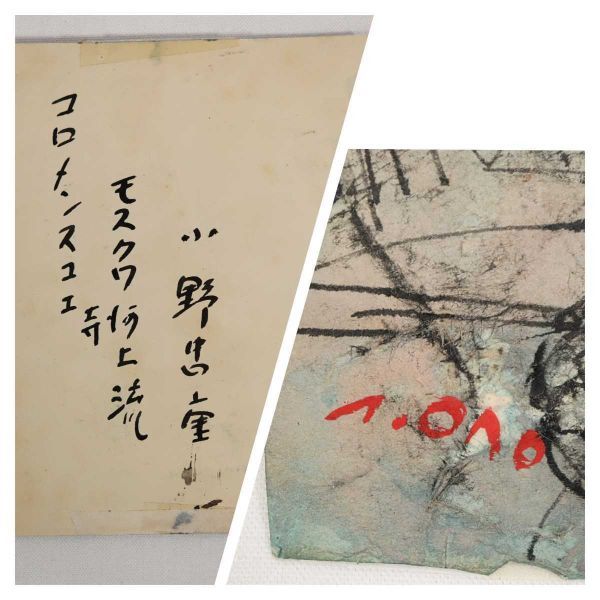 コロメンスコエ寺
モスクワ河上流
小野忠重
T.ONO